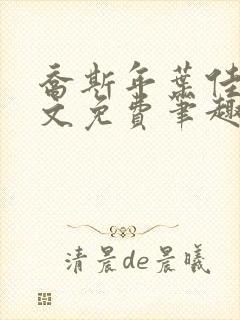 乔斯年叶佳
文免费笔趣
清晨de晨曦